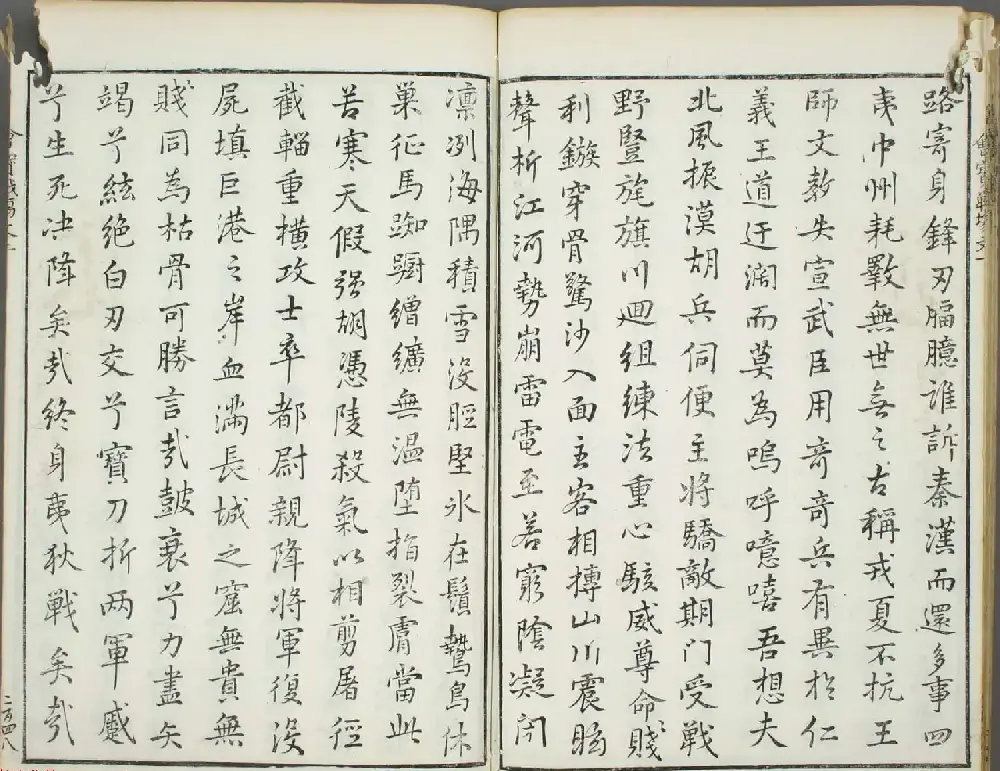 路寄身鋒刃腷臆誰訴秦漢而還多事四
夷中州耗斁無世無之古稱戎夏不抗王
師文教失宣武臣用奇奇兵有異於仁
義王道迂濶而莫為嗚呼噫嘻吾想夫
北風振漠胡兵伺便主將驕敵期门受戰
野豎旄旗川迴組練法重心駭威尊命賤
利鏃穿骨驚沙入面主客相搏山川震眩
聲析江河勢崩雷電至若窮陰凝闭
凛冽海隅積雪没脛堅氷在鬚鷙鳥休
巢征馬踟蹰繒纊無温堕指裂膚當此
苦寒天假强胡憑陵殺氣以相剪屠徑
截輜重横攻士卒都尉親降將軍復没
屍填巨港之岸血满長城之窟無貴無
賤同為枯骨可勝言㢤鼓衰兮力盡矣
竭兮絃絶白刃交兮寶刀折两軍蹙
兮生死决降矣㢤終身夷狄戰矣㢤
二百四八